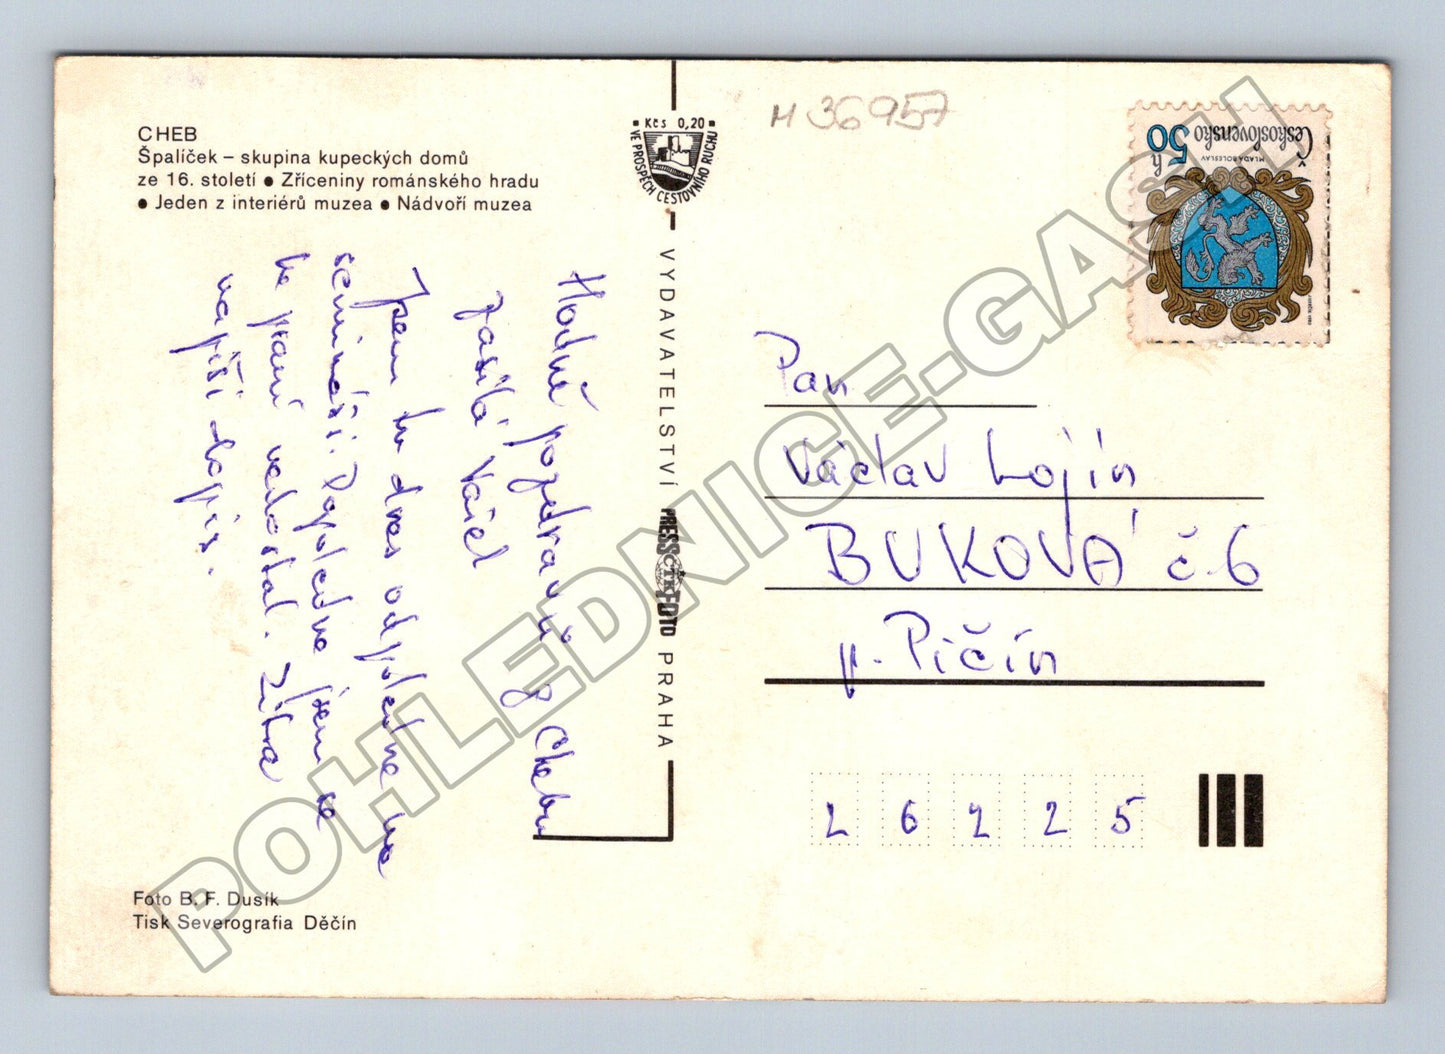 CHEB
Špalíček – skupina kupeckých domů
ze 16. století ● Zříceniny románského hradu
● Jeden z interiérů muzea ● Nádvoří muzea
Hodně pozdravů z Chebu
zasílá Vašek
Jsem tu dnes odpoledne na
semináři. Dopoledne jsem se
ke psaní nedostal. Zítra
napíši dopis.
Foto B. F. Dusík
Tisk Severografia Děčín
Kčs 0,20
VE PROSPĚCH CESTOVNÍHO RUCHU
VYDAVATELSTVÍ PRESSFOTO PRAHA
ČTK
M 36957
Československo
50 h
MLADÁ BOLESLAV
Pan
Václav Lojín
BUKOVÁ č. 6
p. Pičín
26225
POHLEDNICE-GASH